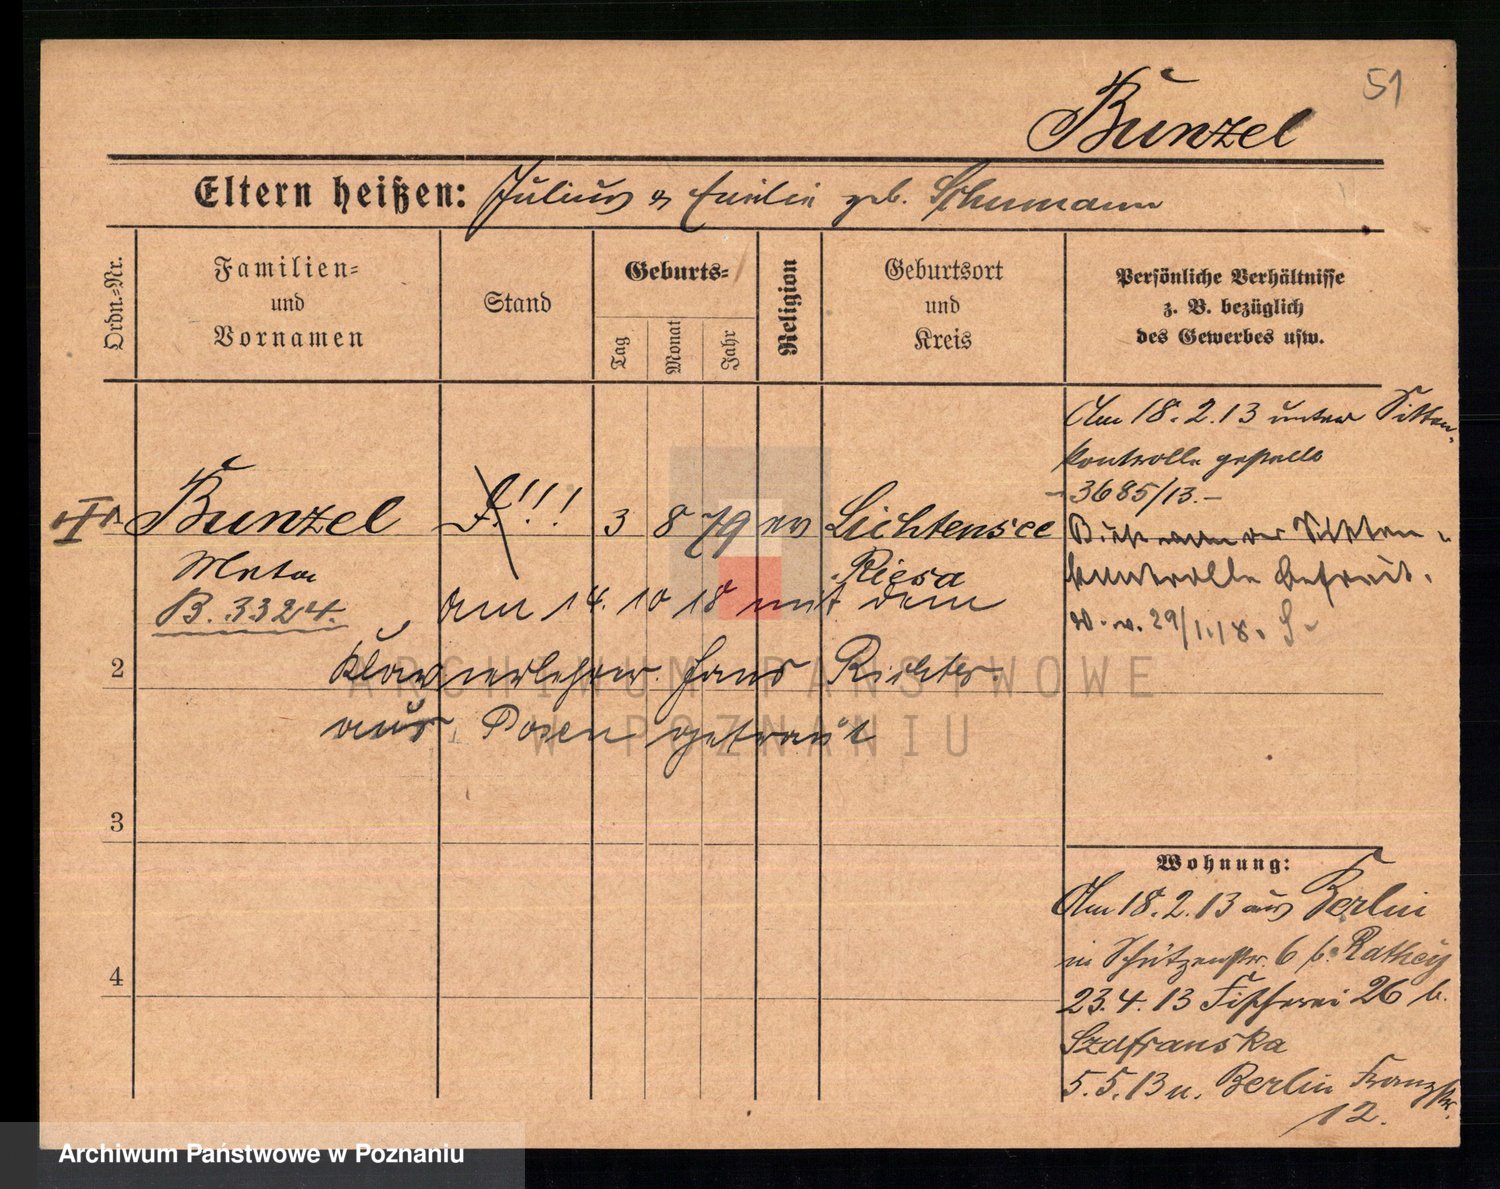 51
Bunzel
Eltern heißen: Julius & Emilie geb. Schumann
Ordn.-Nr.
Familien- und Vornamen
Stand
Geburts-
Tag
Monat
Jahr
Religion
Geburtsort und Kreis
Persönliche Verhältnisse
z. B. bezüglich
des Gewerbes usw.
Bunzel !!! 3 8 79 ev Lichtensee
Meta Riesa
B. 3324.
am 14. 10 18 mit dem
Klavierlehrer Hans Richter
aus Posen getraut
2
3
4
Am 18. 2. 13 unter Sitten-
kontrolle gestellt
3685/13.-
von der Sitten-
kontrolle befreit.
29/1.18. S.
Wohnung:
Am 18. 2. 13 aus Berlin
in Schützenstr. 6 b. Rathey
23. 4. 13 Fischerei 26 b.
Szafranska
5. 5. 13 n. Berlin Franzstr.
12.
ARCHIWUM PAŃSTWOWE
W POZNANIU
Archiwum Państwowe w Poznaniu